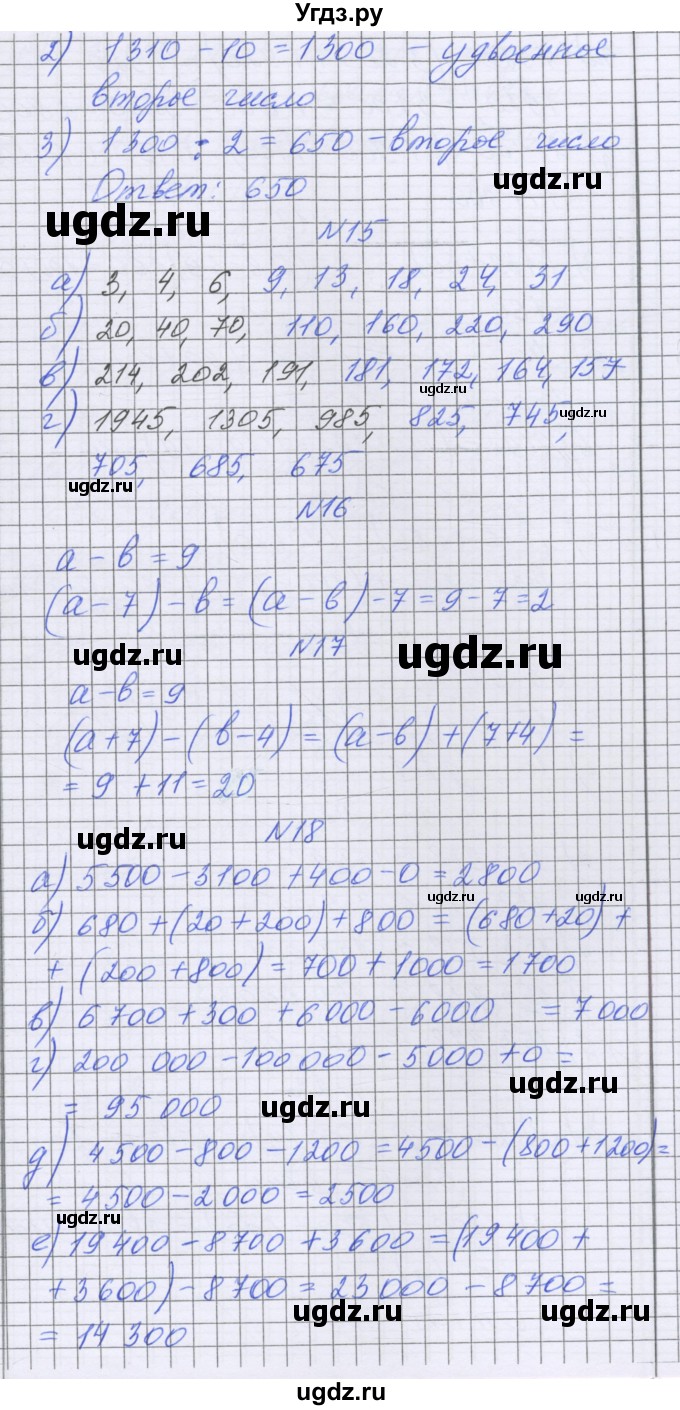 Угдз.ру
2) 1310 - 10 = 1300 - удвоенное
второе число
3) 1300 : 2 = 650 - второе число
Ответ: 650
ugdz.ru
ugdz.ru
N15
а) 3, 4, 6, 9, 13, 18, 24, 31
б) 20, 40, 70, 110, 160, 220, 290
в) 214, 202, 191, 181, 172, 164, 157
ugdz.ru
г) 1945, 1305, 985, 825, 745,
ugdz.ru
705, 685, 675
ugdz.ru
N16
a - b = 9
(a - 7) - b = (a - b) - 7 = 9 - 7 = 2
ugdz.ru
N17
ugdz.ru
a - b = 9
(a + 7) - (b - 4) = (a - b) + (7 + 4) =
= 9 + 11 = 20
ugdz.ru
N18
а) 5500 - 3100 + 400 - 0 = 2800
ugdz.ru
ugdz.ru
б) 680 + (20 + 200) + 800 = (680 + 20) +
+ (200 + 800) = 700 + 1000 = 1700
в) 6700 + 300 + 6000 - 6000 = 7000
г) 200 000 - 100 000 - 5000 + 0 =
ugdz.ru
= 95 000
ugdz.ru
д) 4500 - 800 - 1200 = 4500 - (800 + 1200) =
= 4500 - 2000 = 2500
ugdz.ru
е) 19 400 - 8700 + 3600 = (19 400 +
+ 3600) - 8700 = 23 000 - 8700 =
ugdz.ru
ugdz.ru
= 14 300
ugdz.ru